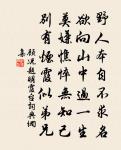 野人本自不求名
欲向山中過一生
莫嫌憔悴無知己
別有煙霞似弟兄
顧況題明霞臺詞典網
集